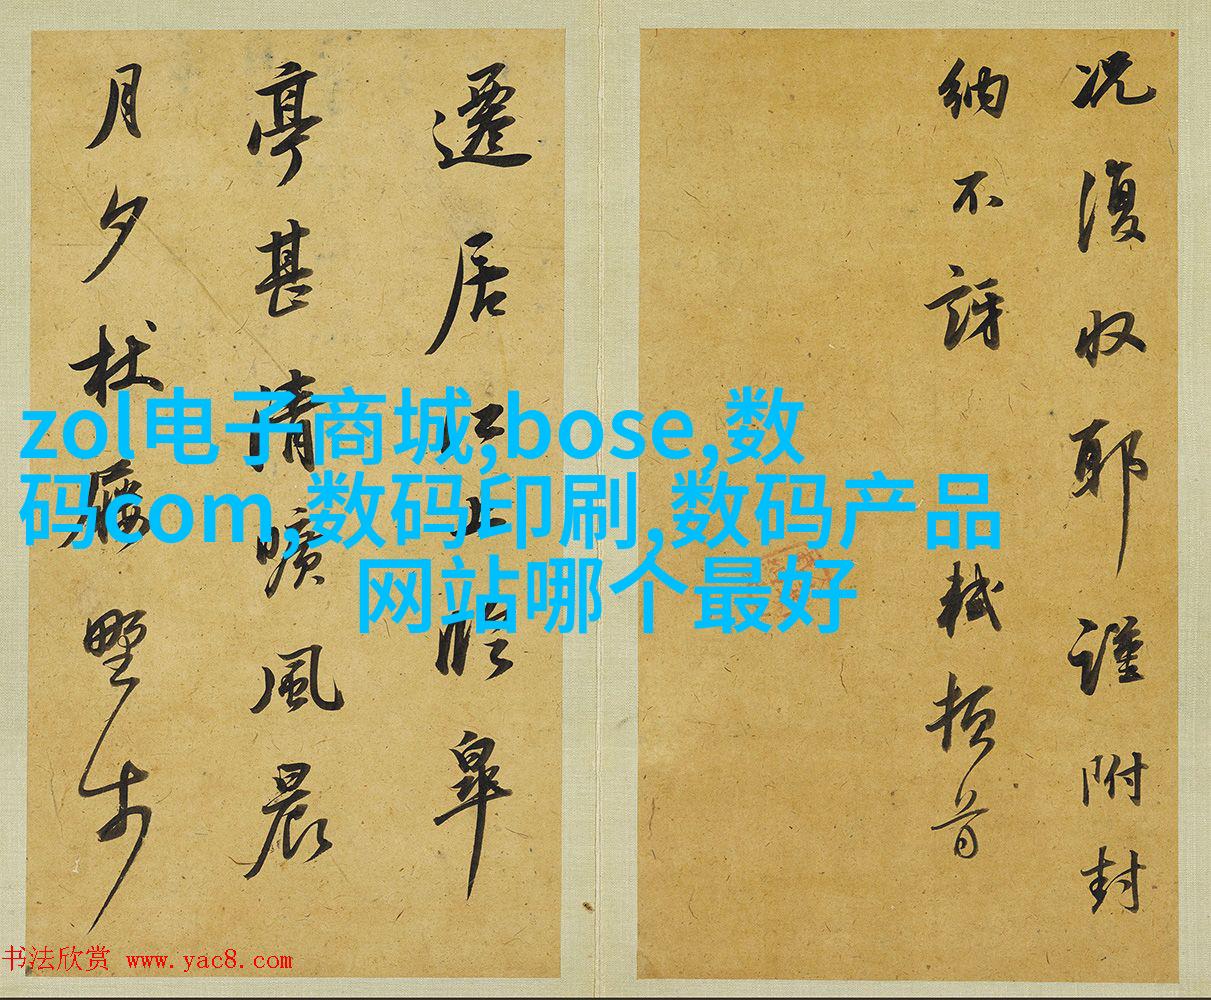 况復収耶謹附封
納不訝軾頓首
遷居江上臨皋
亭甚清曠風晨
月夕杖屨野步
zol电子商城,bose,数
码com,数码印刷,数码产品
网站哪个最好
书法欣赏 www.yac8.com